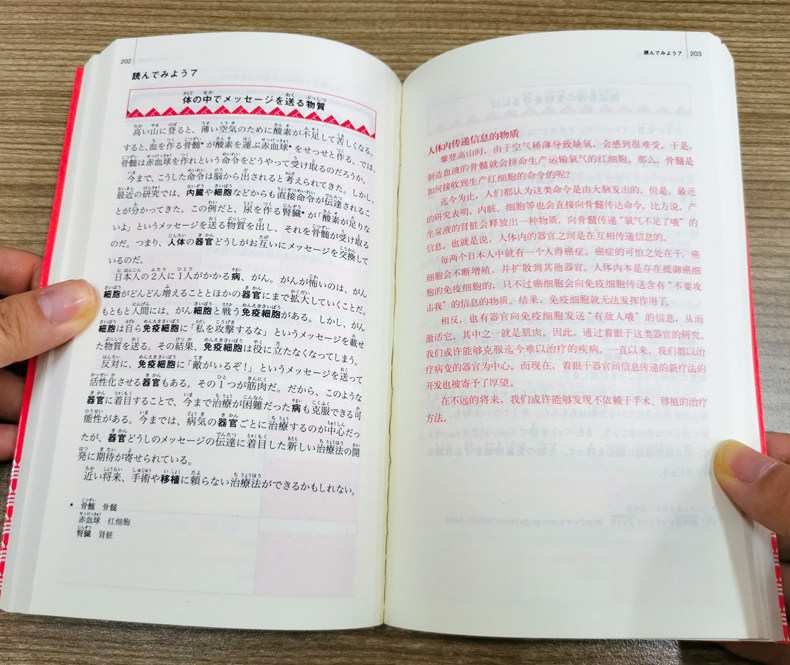 202
読んでみよう7
体の中でメッセージを送る物質
高い山に登ると、薄い空気のために酸素が不足して苦しくなる。
すると、血を作る骨髄*が酸素を運ぶ赤血球*をせっせと作る。では、
骨髄は赤血球を作れという命令をどうやって受け取るのだろうか。
今まで、こうした命令は脳から出されると考えられてきた。しかし、
最近の研究では、内臓や細胞などからも直接命令が伝達されるこ
とが分かってきた。この例だと、尿を作る腎臓*が「酸素が足りな
いよ」というメッセージを送る物質を出し、それを骨髄が受け取る
のだ。つまり、人体の器官どうしがお互いにメッセージを交換して
いるのだ。
日本人の2人に1人がかかる病、がん。がんが怖いのは、がん
細胞がどんどん増えることとほかの器官にまで拡大していくことだ。
もともと人間には、がん細胞と戦う免疫細胞がある。しかし、がん
細胞は自ら免疫細胞に「私を攻撃するな」というメッセージを載せ
た物質を送る。その結果、免疫細胞は役に立たなくなってしまう。
反対に、免疫細胞に「敵がいるぞ！」というメッセージを送って
活性化させる器官もある。その1つが筋肉だ。だから、このような
器官に着目することで、今まで治療が困難だった病も克服できる可
能性がある。今までは、病気の器官ごとに治療するのが中心だっ
たが、器官どうしのメッセージの伝達に着目した新しい治療法の開
発に期待が寄せられている。
近い将来、手術や移植に頼らない治療法ができるかもしれない。
* 骨髄 骨髓
赤血球 红细胞
腎臓 肾脏
読んでみよう7 203
人体内传递信息的物质
攀登高山时，由于空气稀薄导致缺氧，会感到很难受。于是，
制造血液的骨髓就会拼命生产运输氧气的红细胞。那么，骨髓是
如何接收到生产红细胞的命令的呢？
迄今为止，人们都认为这类命令是由大脑发出的。但是，最近
的研究表明，内脏、细胞等也会直接向骨髓传达命令。比方说，产
生尿液的肾脏会释放出一种物质，向骨髓传递“氧气不足了哦”的
信息。也就是说，人体内的器官之间是在互相传递信息的。
每两个日本人中就有一个人得癌症。癌症的可怕之处在于，癌
细胞会不断增殖，并扩散到其他器官。人体内本是存在抵御癌细
胞的免疫细胞的，只不过癌细胞会向免疫细胞传送含有“不要攻
击我”的信息的物质。结果，免疫细胞就无法发挥作用了。
相反，也有器官向免疫细胞发送“有敌人哦”的信息，从而
激活它，其中之一就是肌肉。因此，通过着眼于这类器官的研究，
我们或许能够克服迄今难以治疗的疾病。一直以来，我们都以治
疗病变的器官为中心。而现在，着眼于器官间信息传递的新疗法的
开发也被寄予了厚望。
在不远的将来，我们或许能够发现不依赖于手术、移植的治疗
方法。